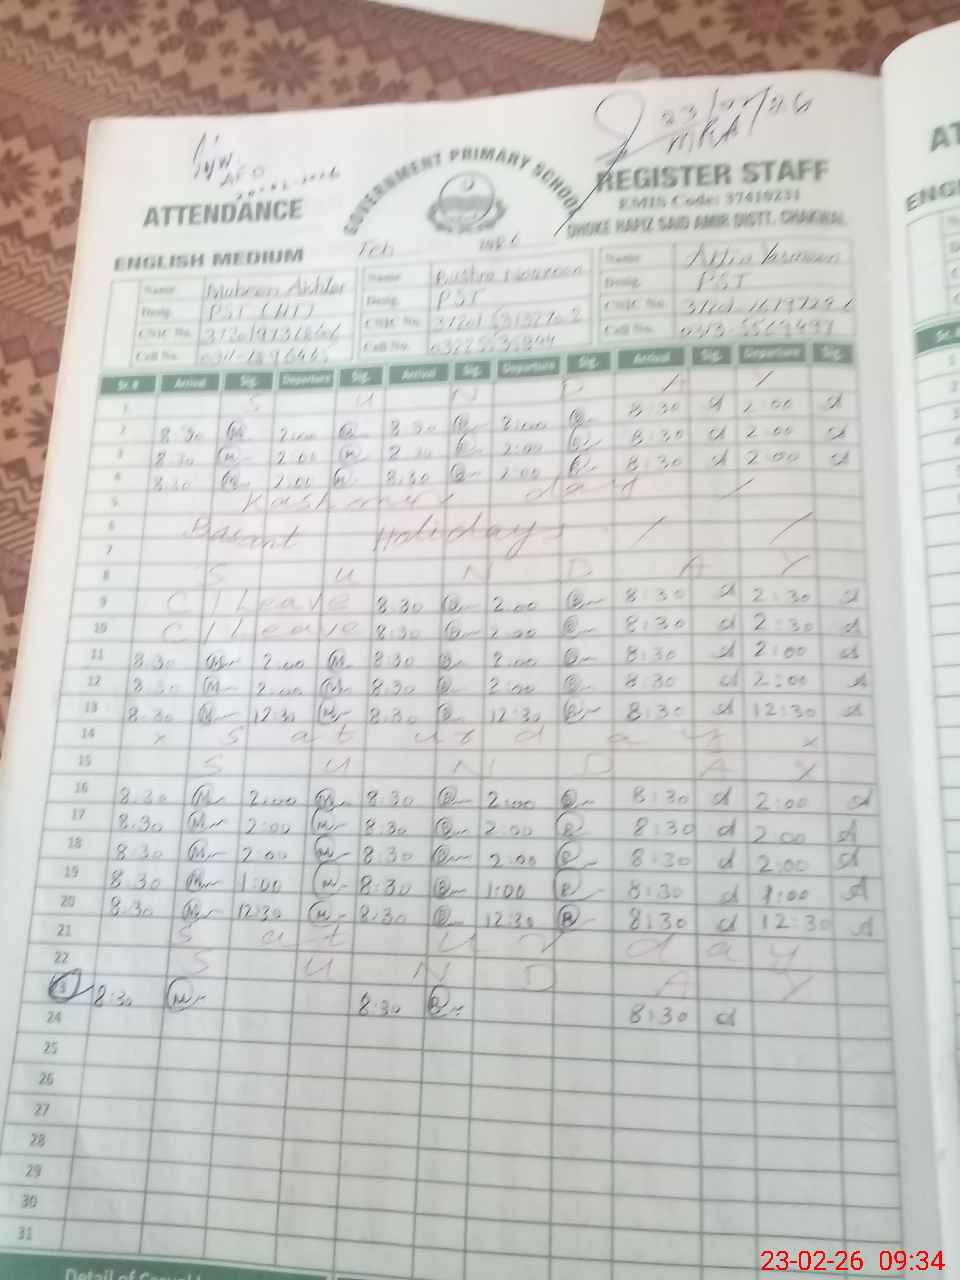 23/02/26
MEA
AEO
20-02-2026
ATTENDANCE
GOVERNMENT PRIMARY SCHOOL
REGISTER STAFF
EMIS Code: 37410231
DHOKE HAFIZ SAID AMIR DISTT. CHAKWAL
ENGLISH MEDIUM
Feb 2026
Name Mahreen Akhtar Name Bushra Noureen Name Attia Yasmeen
Desig. PST (HT) Desig. PST Desig. PST
CNIC No. CNIC No. CNIC No.
Cell No. Cell No. Cell No.
Sr.# Arrival Sig. Departure Sig. Arrival Sig. Departure Sig. Arrival Sig. Departure Sig.
1 S U N D A Y
2 8:30 M 2:00 8:30 B 2:00 B 8:30 d 2:00 d
3 8:30 M 2:00 M 8:30 B 2:00 B 8:30 d 2:00 d
4 8:30 M 2:00 M 8:30 B 2:00 B 8:30 d 2:00 d
5 Kashmir day
6 Basant Holidays
7
8 S U N D A Y
9 C/Leave 8:30 B 2:00 B 8:30 d 2:30 d
10 C/Leave 8:30 B 2:00 B 8:30 d 2:30 d
11 8:30 M 2:00 M 8:30 B 2:00 B 8:30 d 2:00 d
12 8:30 M 2:00 M 8:30 B 2:00 B 8:30 d 2:00 d
13 8:30 M 12:30 M 8:30 B 12:30 B 8:30 d 12:30 d
14 x S a t u r d a y x
15 S U N D A Y
16 8:30 M 2:00 M 8:30 B 2:00 B 8:30 d 2:00 d
17 8:30 M 2:00 M 8:30 B 2:00 B 8:30 d 2:00 d
18 8:30 M 2:00 M 8:30 B 2:00 B 8:30 d 2:00 d
19 8:30 M 1:00 M 8:30 B 1:00 B 8:30 d 1:00 d
20 8:30 M 12:30 M 8:30 B 12:30 B 8:30 d 12:30 d
21 S a t u r d a y
22 S U N D A Y
23 8:30 M 8:30 B 8:30 d
24
25
26
27
28
29
30
31
Detail of
AT
ENGL
Sr.#
23-02-26 09:34